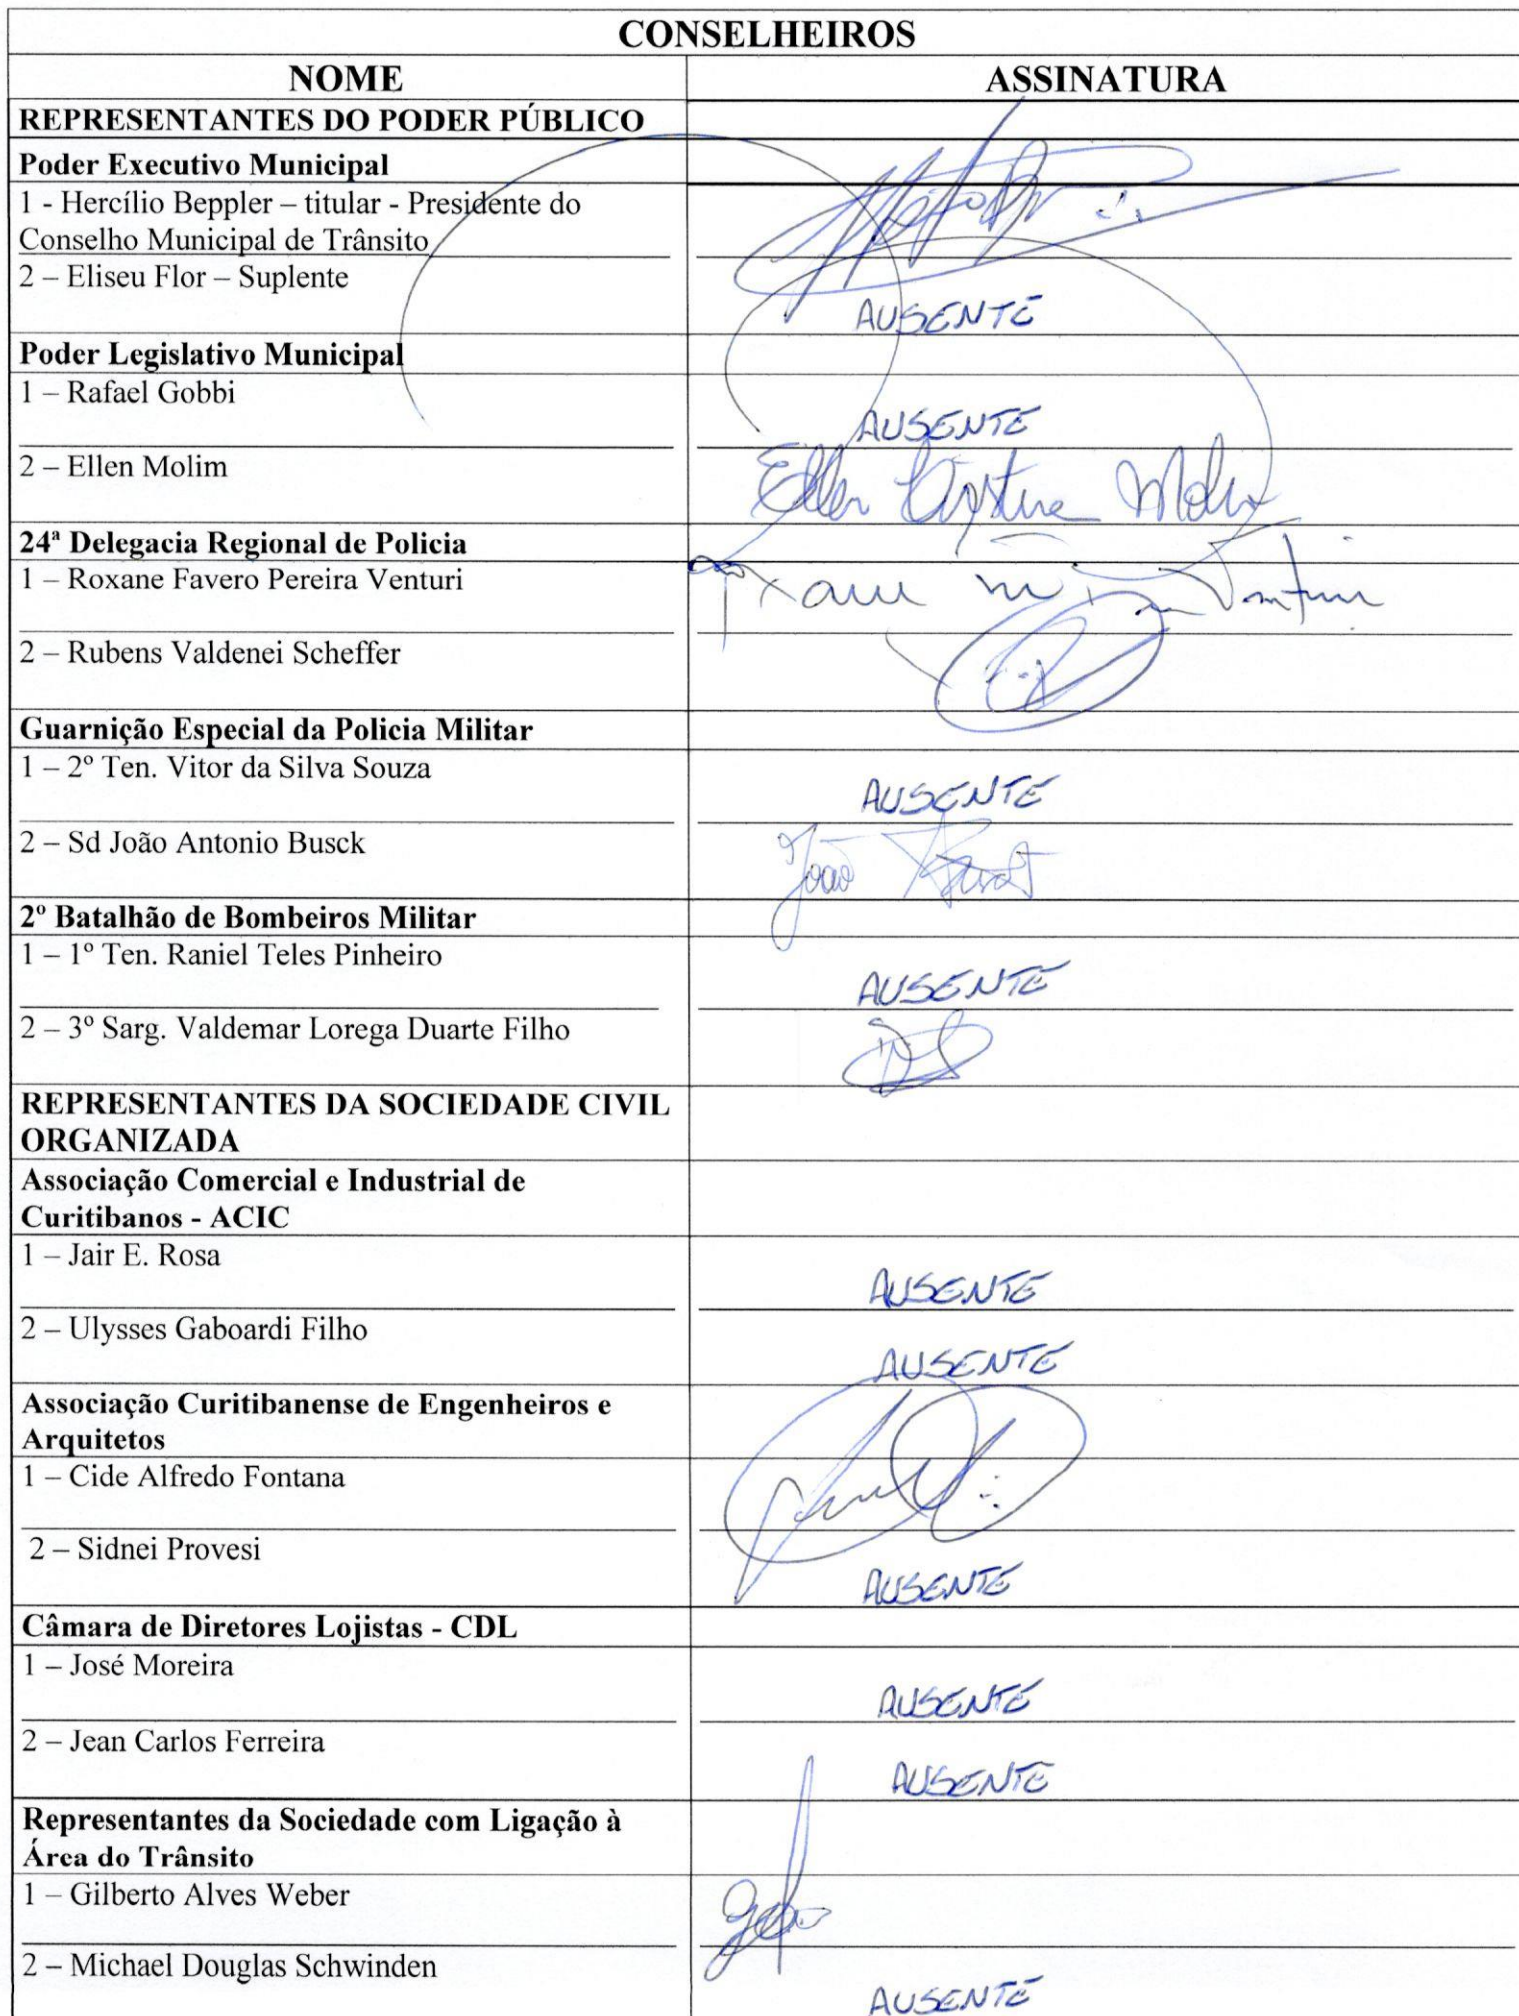 CONSELHEIROS
NOME ASSINATURA
REPRESENTANTES DO PODER PÚBLICO
Poder Executivo Municipal
1 - Hercílio Beppler – titular - Presidente do
Conselho Municipal de Trânsito
2 – Eliseu Flor – Suplente
AUSENTE
Poder Legislativo Municipal
1 – Rafael Gobbi
AUSENTE
2 – Ellen Molim
Ellen
24ª Delegacia Regional de Policia
1 – Roxane Favero Pereira Venturi
2 – Rubens Valdenei Scheffer
Guarnição Especial da Policia Militar
1 – 2º Ten. Vitor da Silva Souza
AUSENTE
2 – Sd João Antonio Busck
João
2º Batalhão de Bombeiros Militar
1 – 1º Ten. Raniel Teles Pinheiro
AUSENTE
2 – 3º Sarg. Valdemar Lorega Duarte Filho
REPRESENTANTES DA SOCIEDADE CIVIL
ORGANIZADA
Associação Comercial e Industrial de
Curitibanos - ACIC
1 – Jair E. Rosa
AUSENTE
2 – Ulysses Gaboardi Filho
AUSENTE
Associação Curitibanense de Engenheiros e
Arquitetos
1 – Cide Alfredo Fontana
2 – Sidnei Provesi
AUSENTE
Câmara de Diretores Lojistas - CDL
1 – José Moreira
AUSENTE
2 – Jean Carlos Ferreira
AUSENTE
Representantes da Sociedade com Ligação à
Área do Trânsito
1 – Gilberto Alves Weber
2 – Michael Douglas Schwinden
AUSENTE